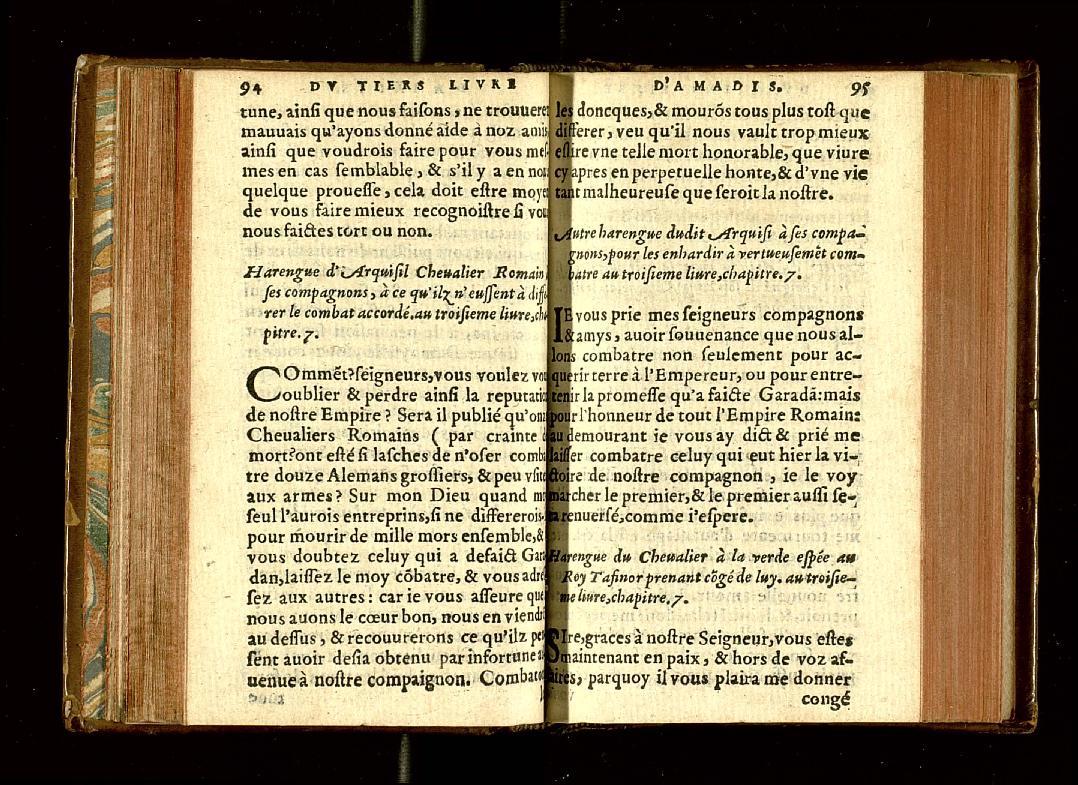 94 DV TIERS LIVRE
tune, ainſi que nous faiſons, ne trouuerez
mauuais qu'ayons donné aide à noz amis,
ainſi que voudrois faire pour vous meſ-
mes en cas ſemblable, & s'il y a en nous
quelque proueſſe, cela doit eſtre moyen
de vous faire mieux recognoiſtre ſi vous
nous faictes tort ou non.
Harengue d'Arquiſil Cheualier Romain
ſes compagnons, à ce qu'ilz n'euſſent à diffe
rer le combat accordé. au troiſieme liure, cha
pitre. 7.
COmmẽt? ſeigneurs, vous voulez vous
oublier & perdre ainſi la reputation
de noſtre Empire? Sera il publié qu'onze
Cheualiers Romains ( par crainte de
mort? ont eſté ſi laſches de n'oſer comba
tre douze Alemans groſſiers, & peu vſitez
aux armes? Sur mon Dieu quand moy
ſeul l'aurois entreprins, ſi ne differerois-
pour mourir de mille mors enſemble, &
vous doubtez celuy qui a defaict Gara
dan, laiſſez le moy cõbatre, & vous adreſ
ſez aux autres: car ie vous aſſeure que
nous auons le cœur bon, nous en viendrõs
au deſſus, & recouurerons ce qu'ilz pen
ſent auoir deſia obtenu par infortune ad
uenue à noſtre compaignon. Combatons
D'AMADIS. 95
les doncques, & mourõs tous plus toſt que
differer, veu qu'il nous vault trop mieux
eſlire vne telle mort honorable, que viure
cy apres en perpetuelle honte, & d'vne vie
tant malheureuſe que ſeroit la noſtre.
Autre harengue dudit Arquiſi à ſes compa-
gnons, pour les enhardir à vertueuſemẽt com-
batre au troiſieme liure, chapitre. 7.
IE vous prie mes ſeigneurs compagnons
& amys, auoir ſouuenance que nous al-
lons combatre non ſeulement pour ac-
querir terre à l'Empereur, ou pour entre-
tenir la promeſſe qu'a faicte Garadã: mais
pour l'honneur de tout l'Empire Romain:
au demourant ie vous ay dict & prié me
laiſſer combatre celuy qui eut hier la vi-
ctoire de noſtre compagnon, ie le voy
marcher le premier, & le premier auſſi ſe-
ra renuerſé, comme i'eſpere.
Harengue du Cheualier à la verde eſpée au
Roy Tafinor prenant cõgé de luy. au troiſie-
me liure, chapitre. 7.
SIre, graces à noſtre Seigneur, vous eſtes
maintenant en paix, & hors de voz af-
faires, parquoy il vous plaira me donner
congé